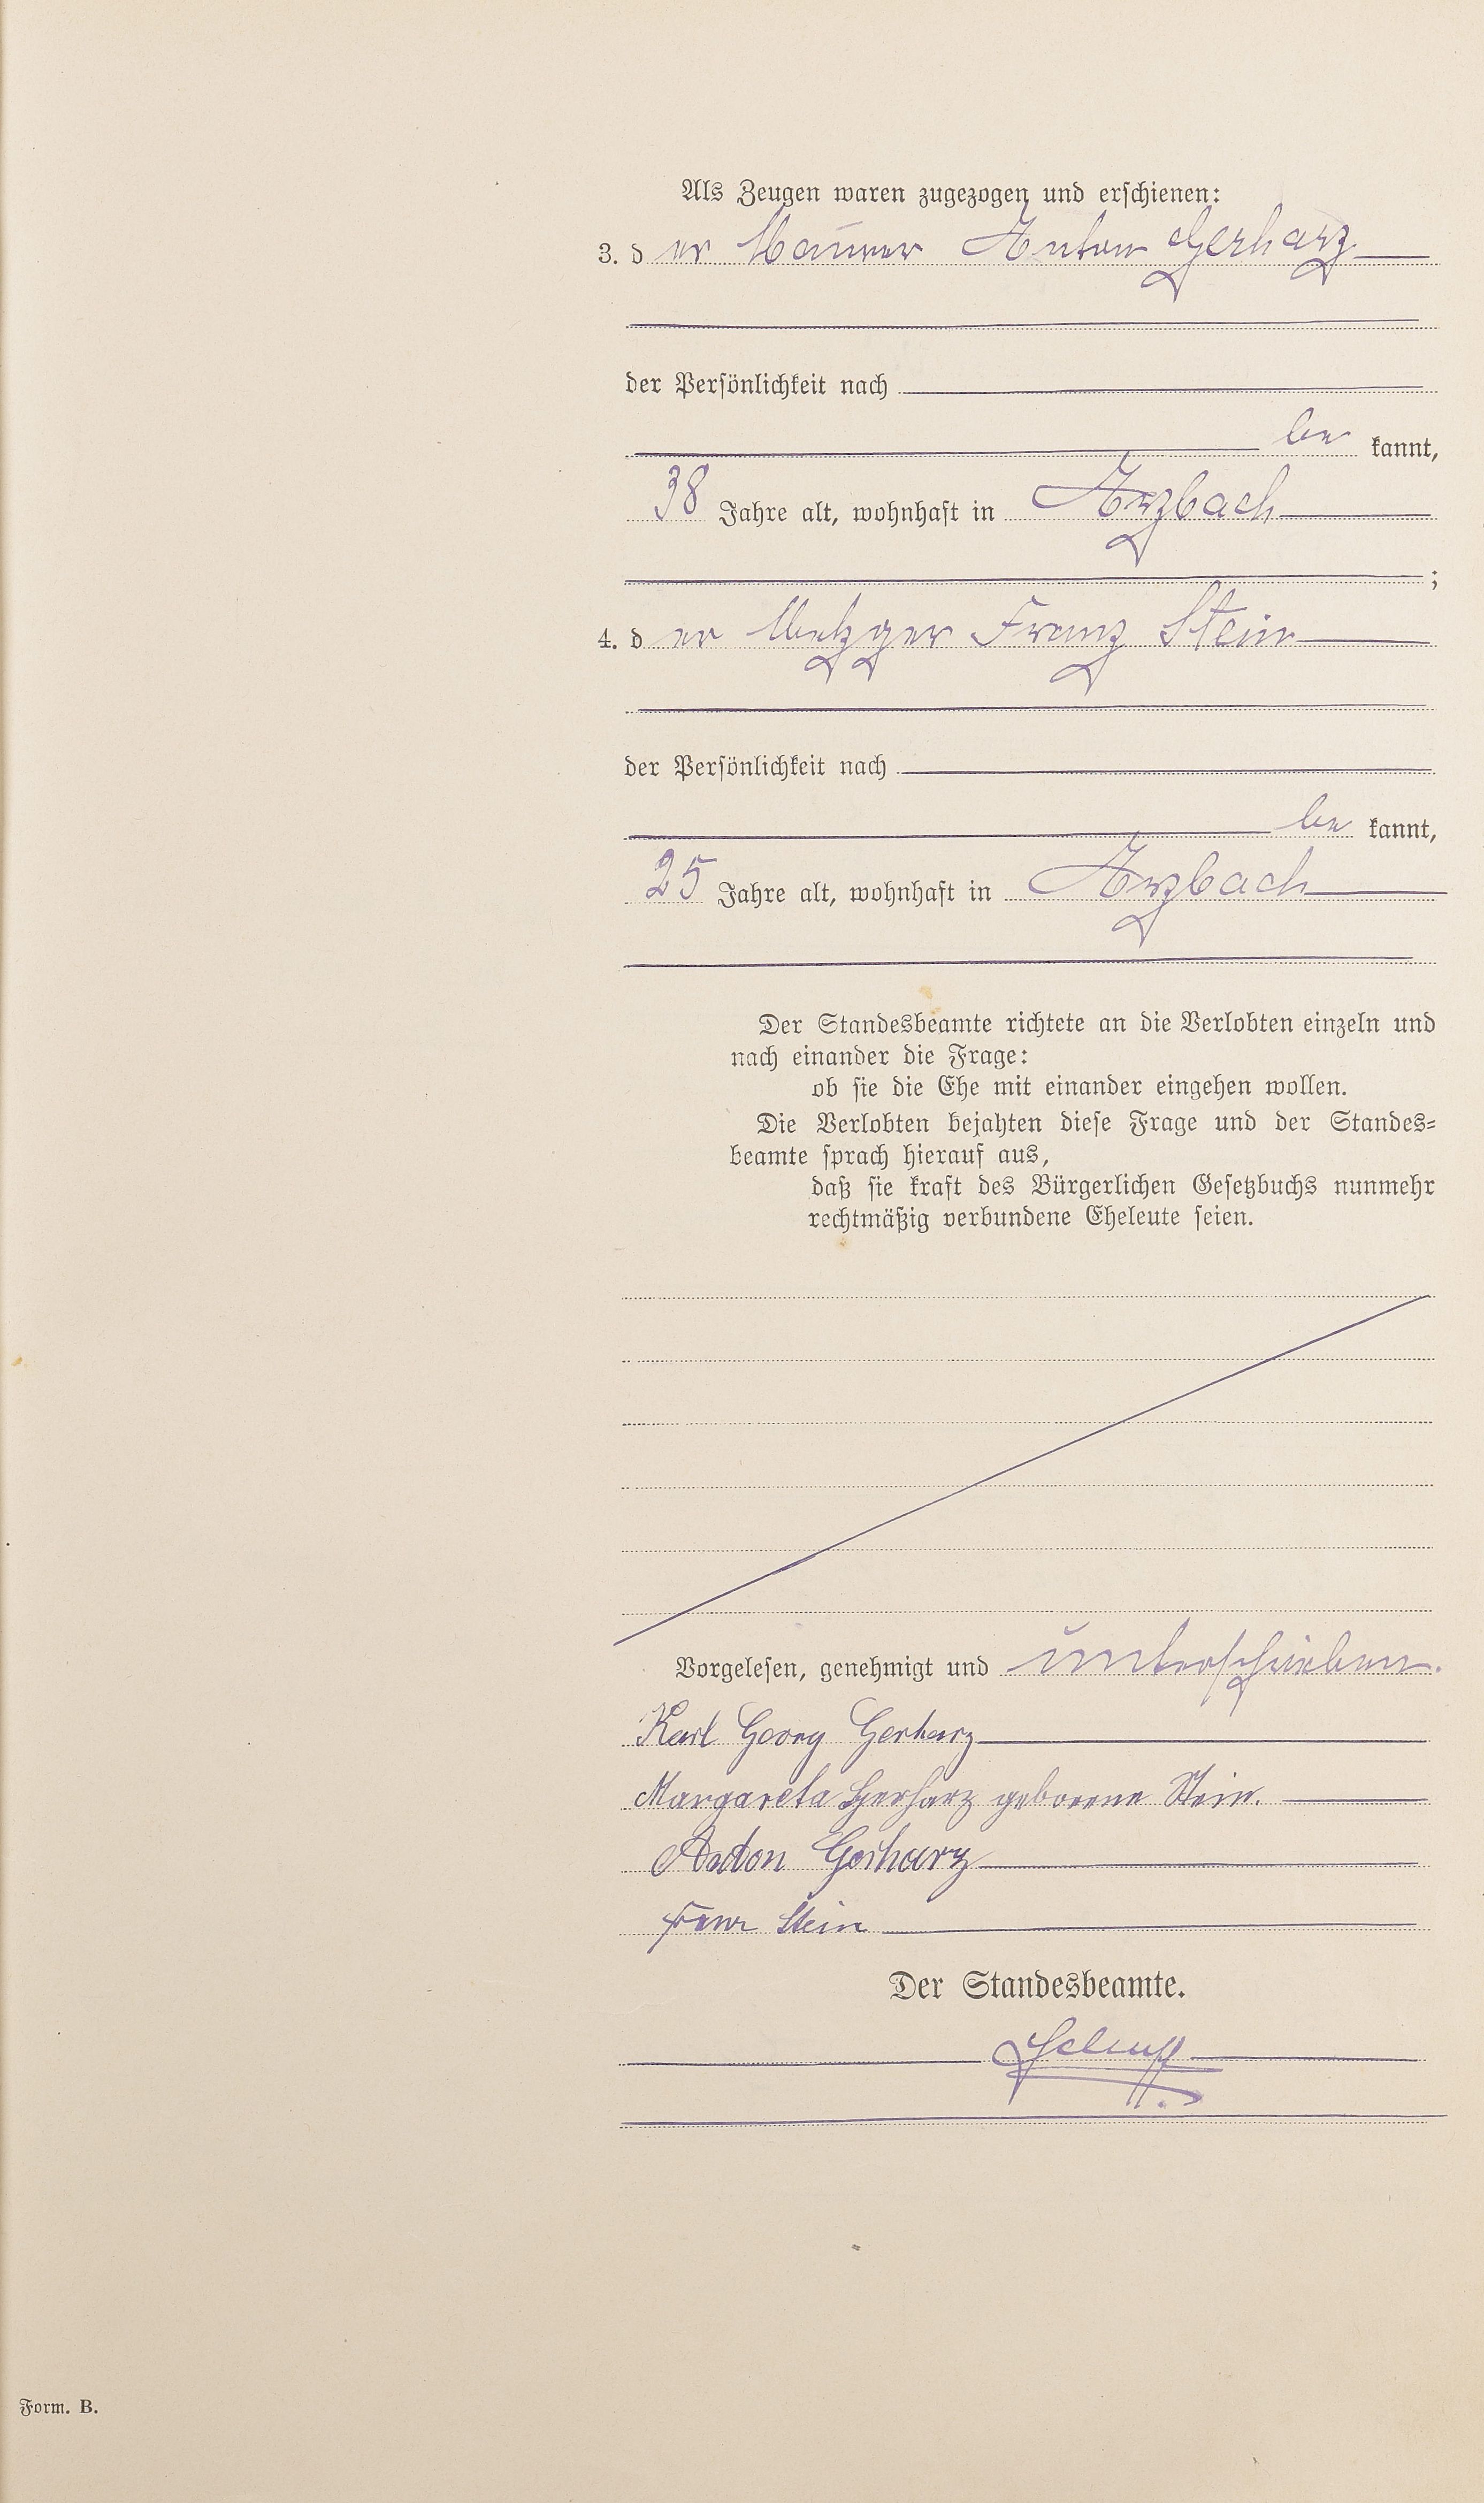 Als Zeugen waren zugezogen und erschienen:
3. der Maurer Anton Gerharz
der Persönlichkeit nach
be kannt,
38 Jahre alt, wohnhaft in Arzbach
;
4. der Metzger Franz Stein
der Persönlichkeit nach
be kannt,
25 Jahre alt, wohnhaft in Arzbach
Der Standesbeamte richtete an die Verlobten einzeln und
nach einander die Frage:
ob sie die Ehe mit einander eingehen wollen.
Die Verlobten bejahten diese Frage und der Standes=
beamte sprach hierauf aus,
daß sie kraft des Bürgerlichen Gesetzbuchs nunmehr
rechtmäßig verbundene Eheleute seien.
Vorgelesen, genehmigt und unterschrieben.
Karl Georg Gerharz
Margareta Gerharz geborene Stein.
Anton Gerharz
Franz Stein
Der Standesbeamte.
Form. B.